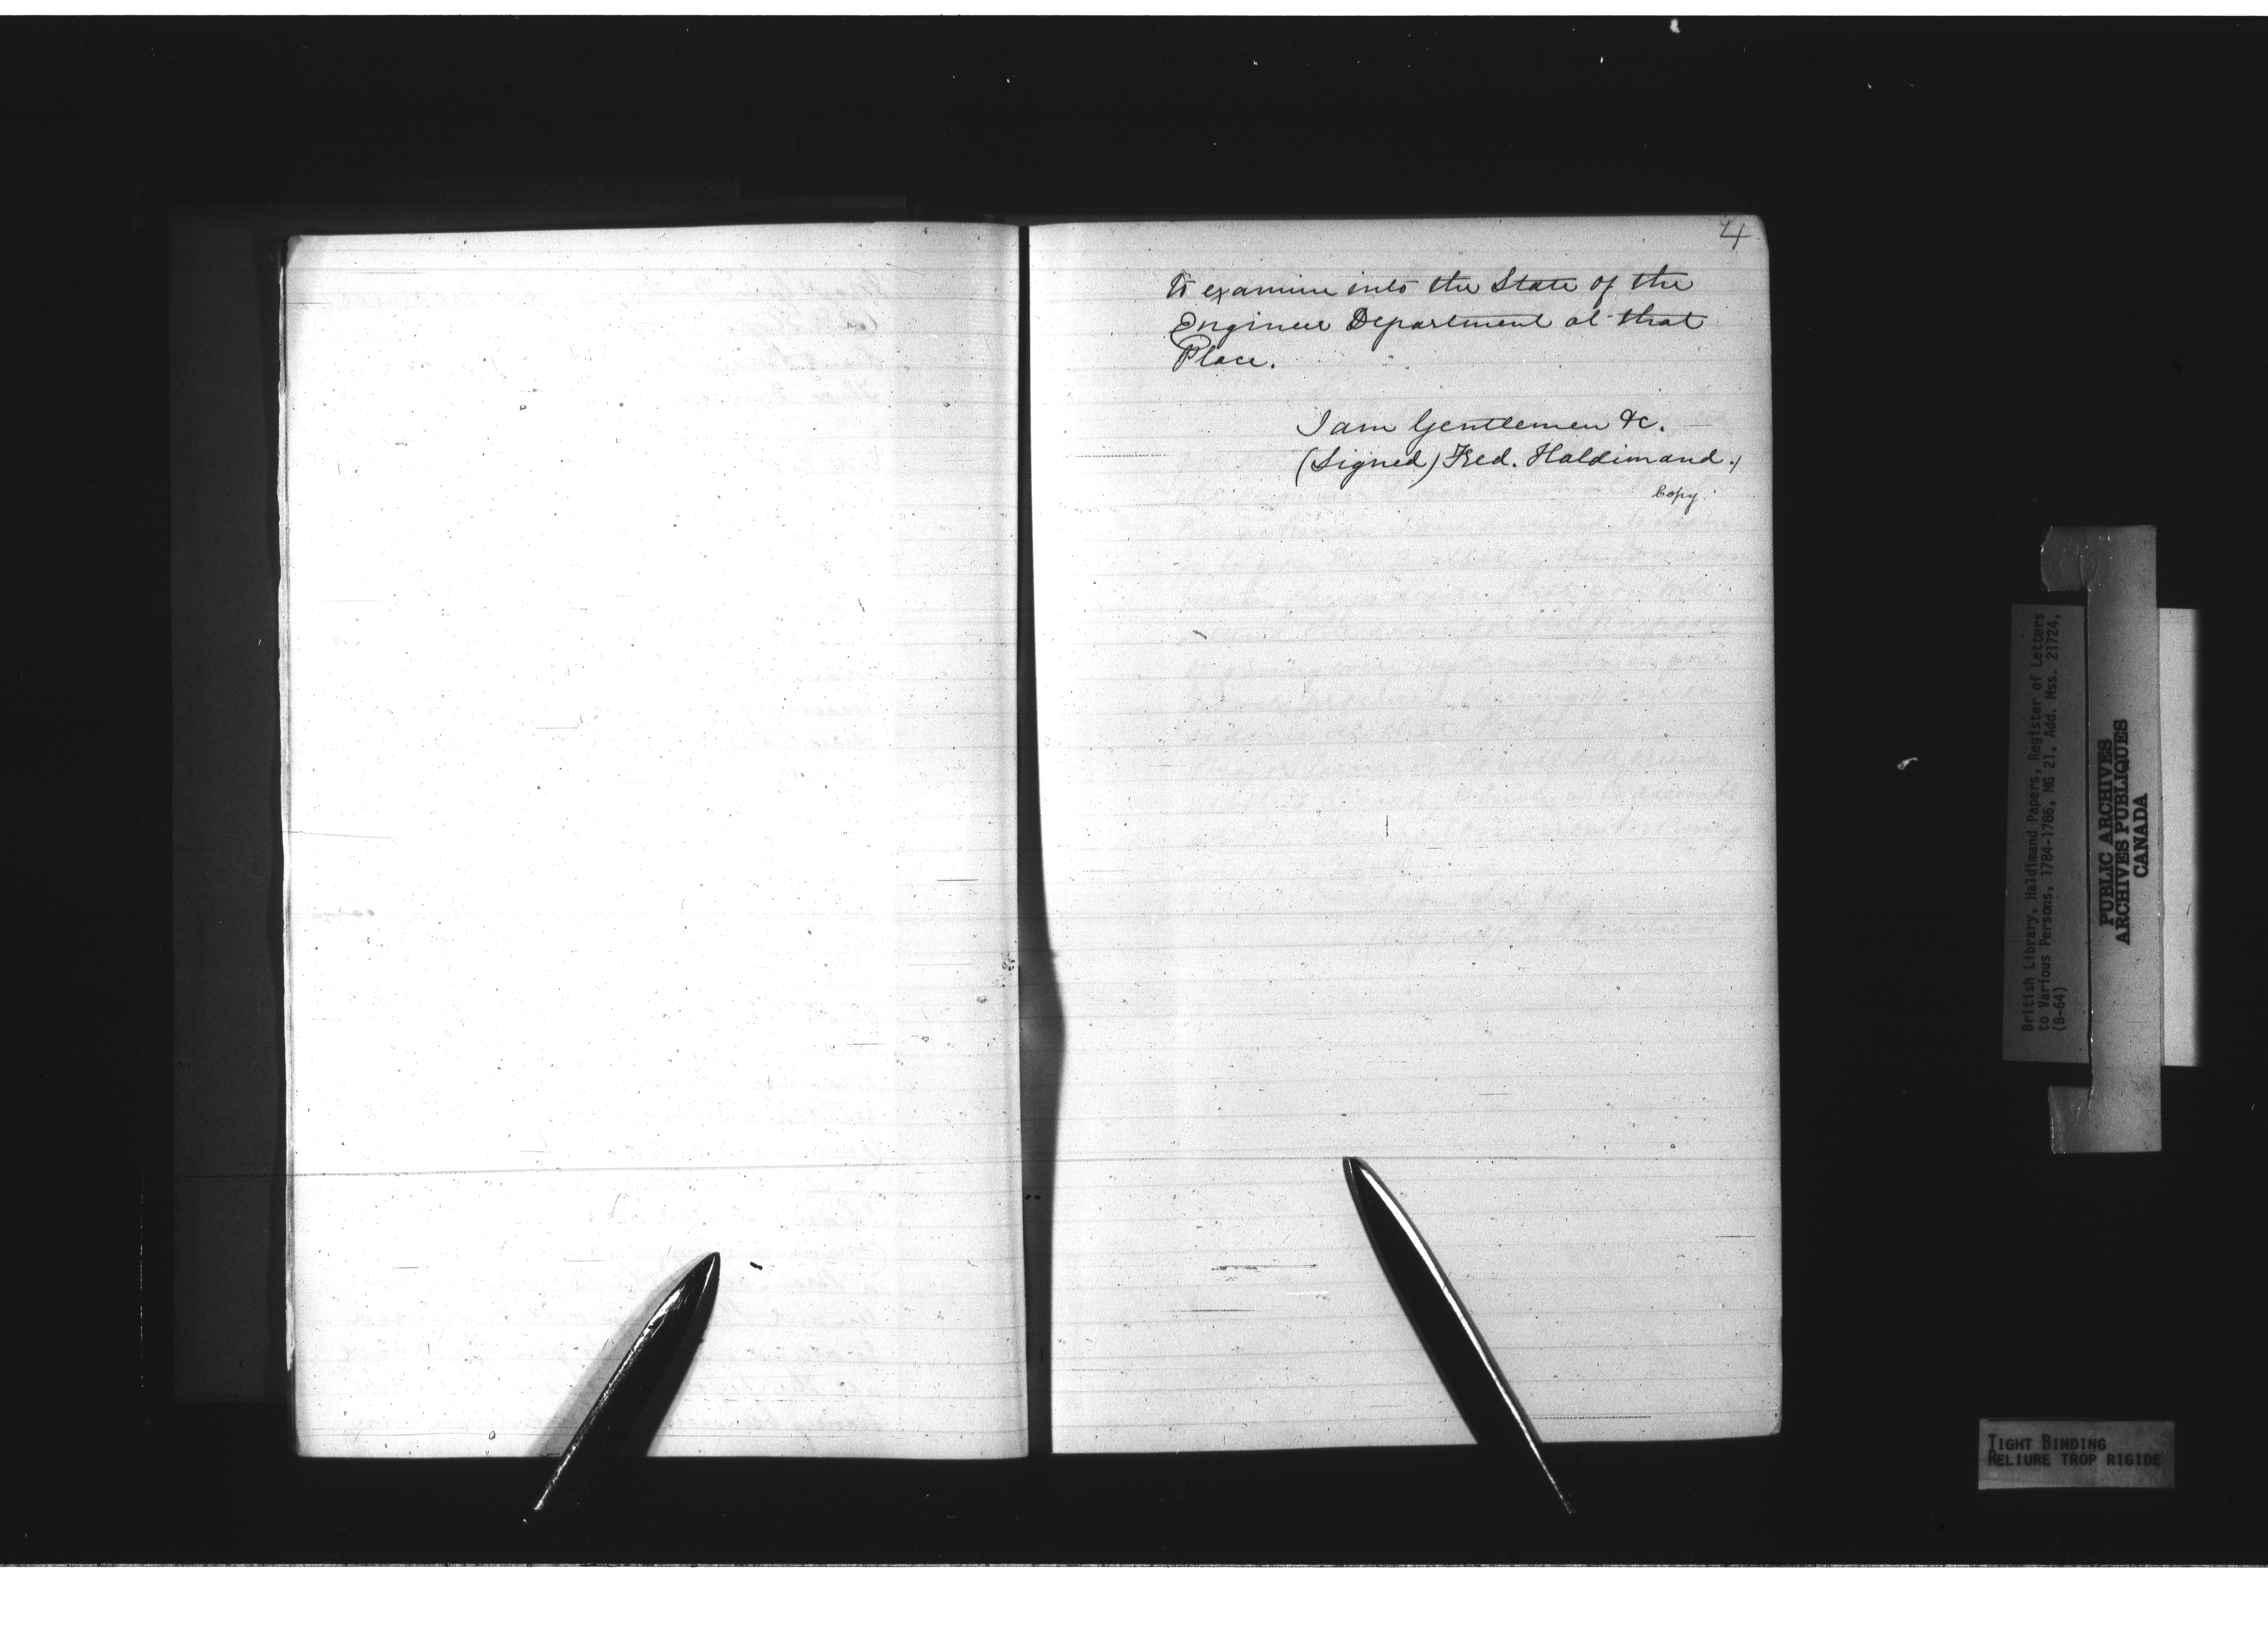 4
to examine into the State of the
Engineer Department at that
Place.
I am Gentlemen &c.
(Signed) Fred. Haldimand.)
Copy.
British Library, Haldimand Papers, Register of Letters
to Various Persons, 1784-1786, MG 21, Add. Mss. 21724,
(B-64)
PUBLIC ARCHIVES
ARCHIVES PUBLIQUES
CANADA
TIGHT BINDING
RELIURE TROP RIGIDE